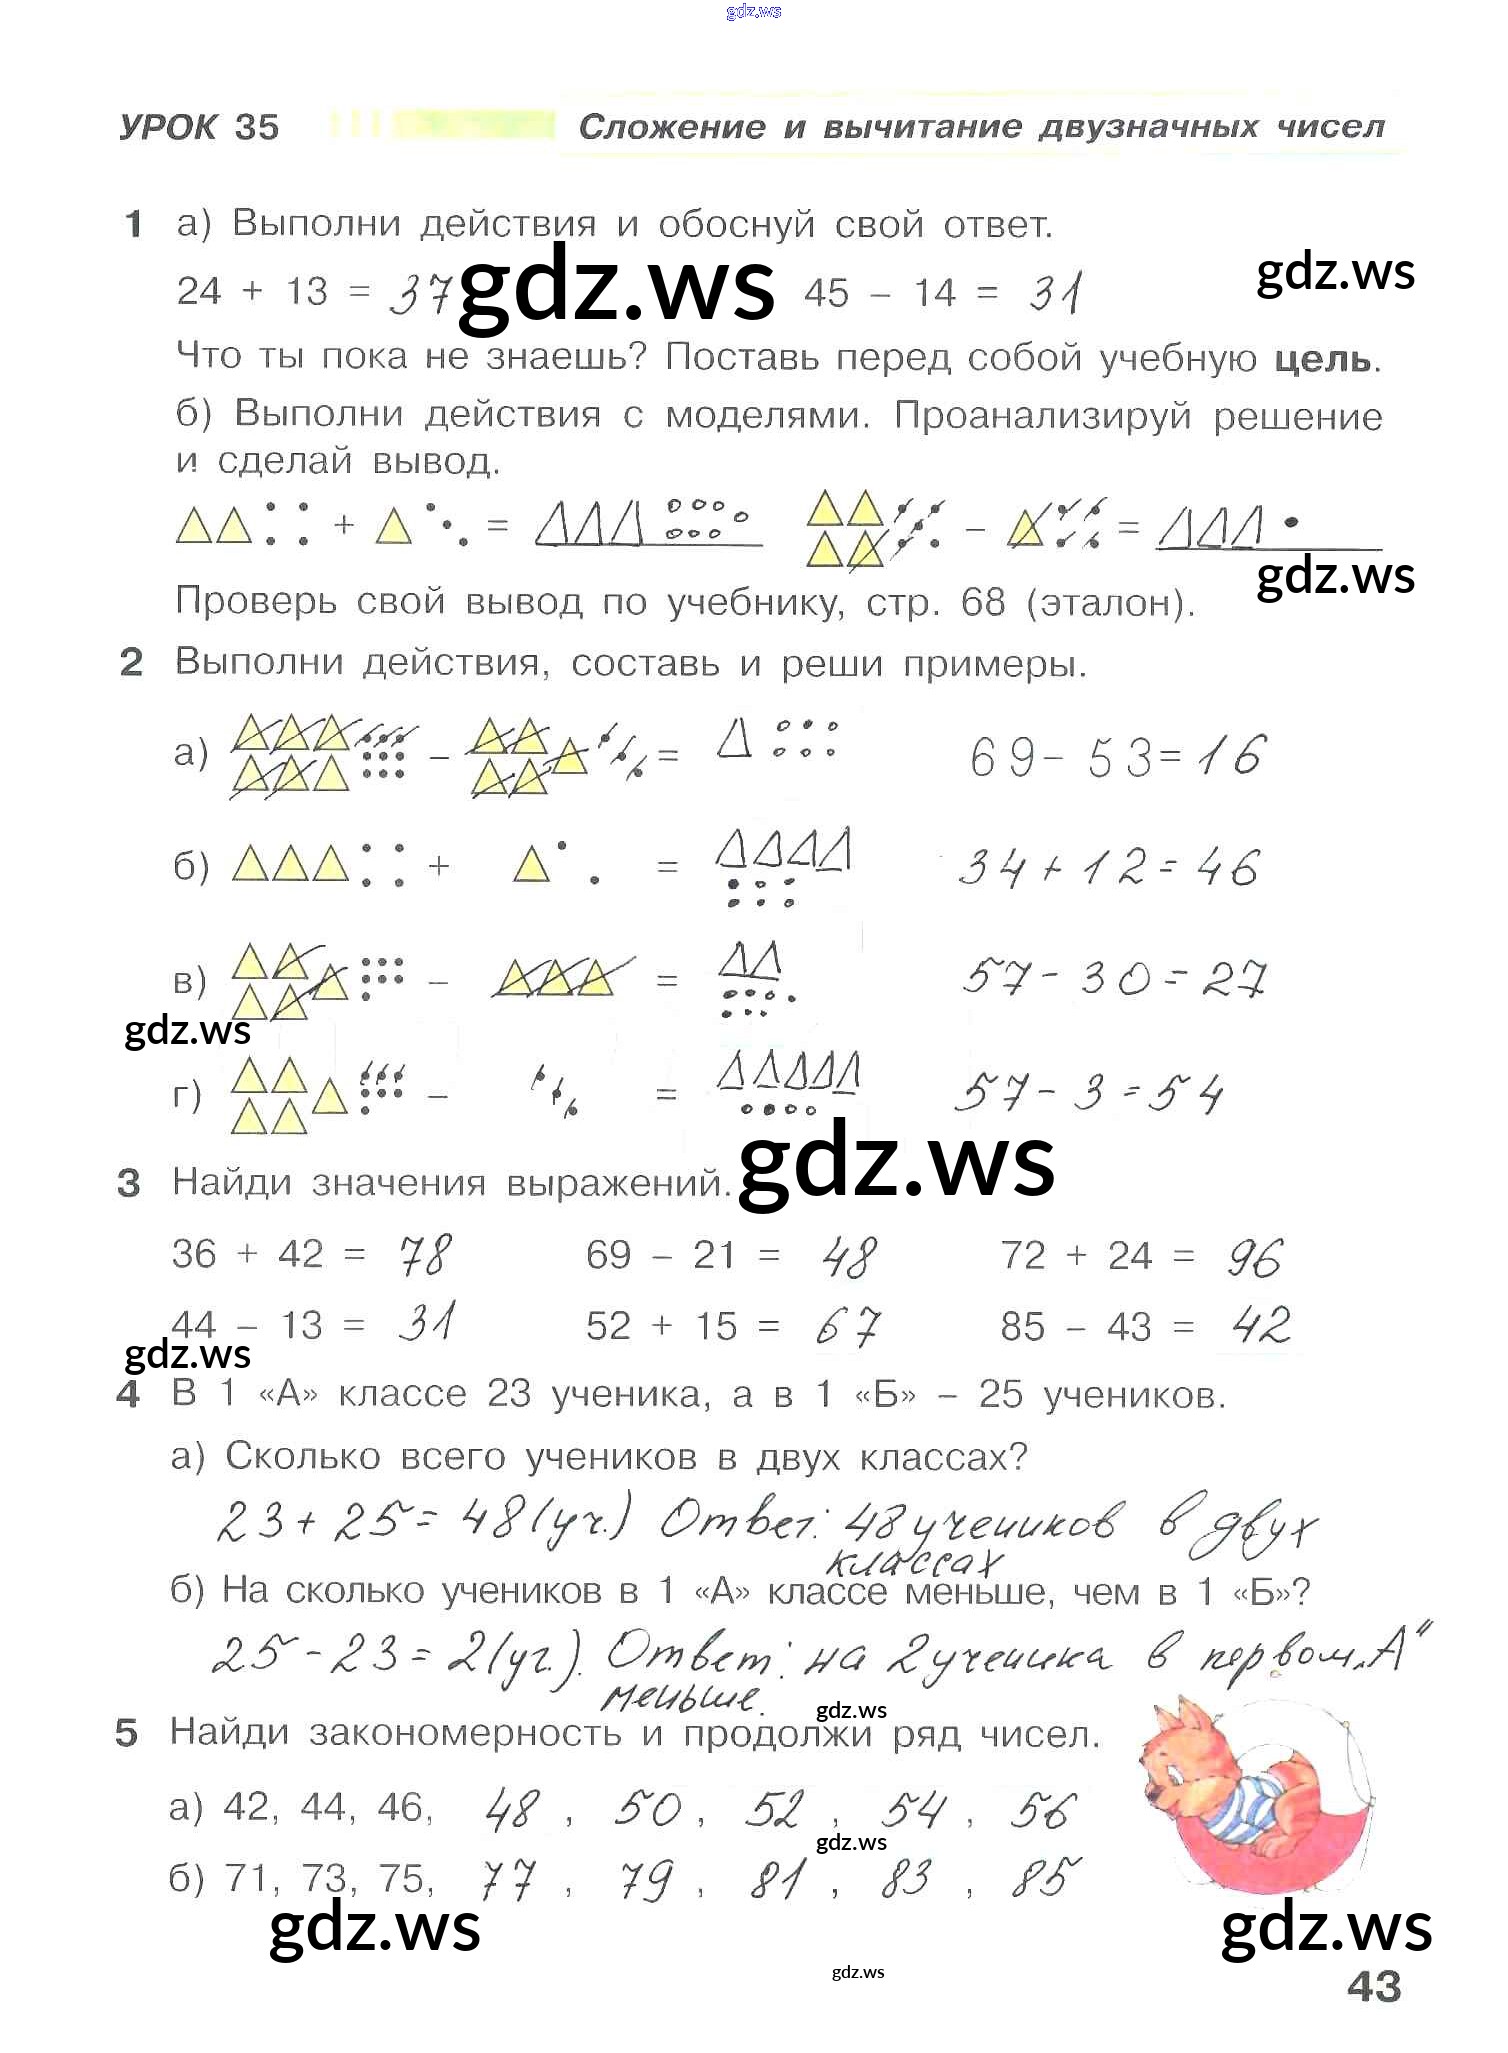 gdz.ws
УРОК 35 Сложение и вычитание двузначных чисел
1 а) Выполни действия и обоснуй свой ответ.
24 + 13 = 37 gdz.ws 45 – 14 = 31 gdz.ws
Что ты пока не знаешь? Поставь перед собой учебную цель.
б) Выполни действия с моделями. Проанализируй решение
и сделай вывод.
+ = – =
gdz.ws
Проверь свой вывод по учебнику, стр. 68 (эталон).
2 Выполни действия, составь и реши примеры.
а) – = 69 – 53 = 16
б) + = 34 + 12 = 46
в) – = 57 – 30 = 27
gdz.ws
г) – = 57 – 3 = 54
3 Найди значения выражений. gdz.ws
36 + 42 = 78 69 – 21 = 48 72 + 24 = 96
44 – 13 = 31 52 + 15 = 67 85 – 43 = 42
gdz.ws
4 В 1 «А» классе 23 ученика, а в 1 «Б» – 25 учеников.
а) Сколько всего учеников в двух классах?
23 + 25 = 48 (уч.) Ответ: 48 учеников в двух
классах
б) На сколько учеников в 1 «А» классе меньше, чем в 1 «Б»?
25 – 23 = 2 (уч.). Ответ: на 2 ученика в первом „А"
меньше.
gdz.ws
5 Найди закономерность и продолжи ряд чисел.
а) 42, 44, 46, 48 , 50 , 52 , 54 , 56
gdz.ws
б) 71, 73, 75, 77 , 79 , 81 , 83 , 85
gdz.ws gdz.ws
gdz.ws
43